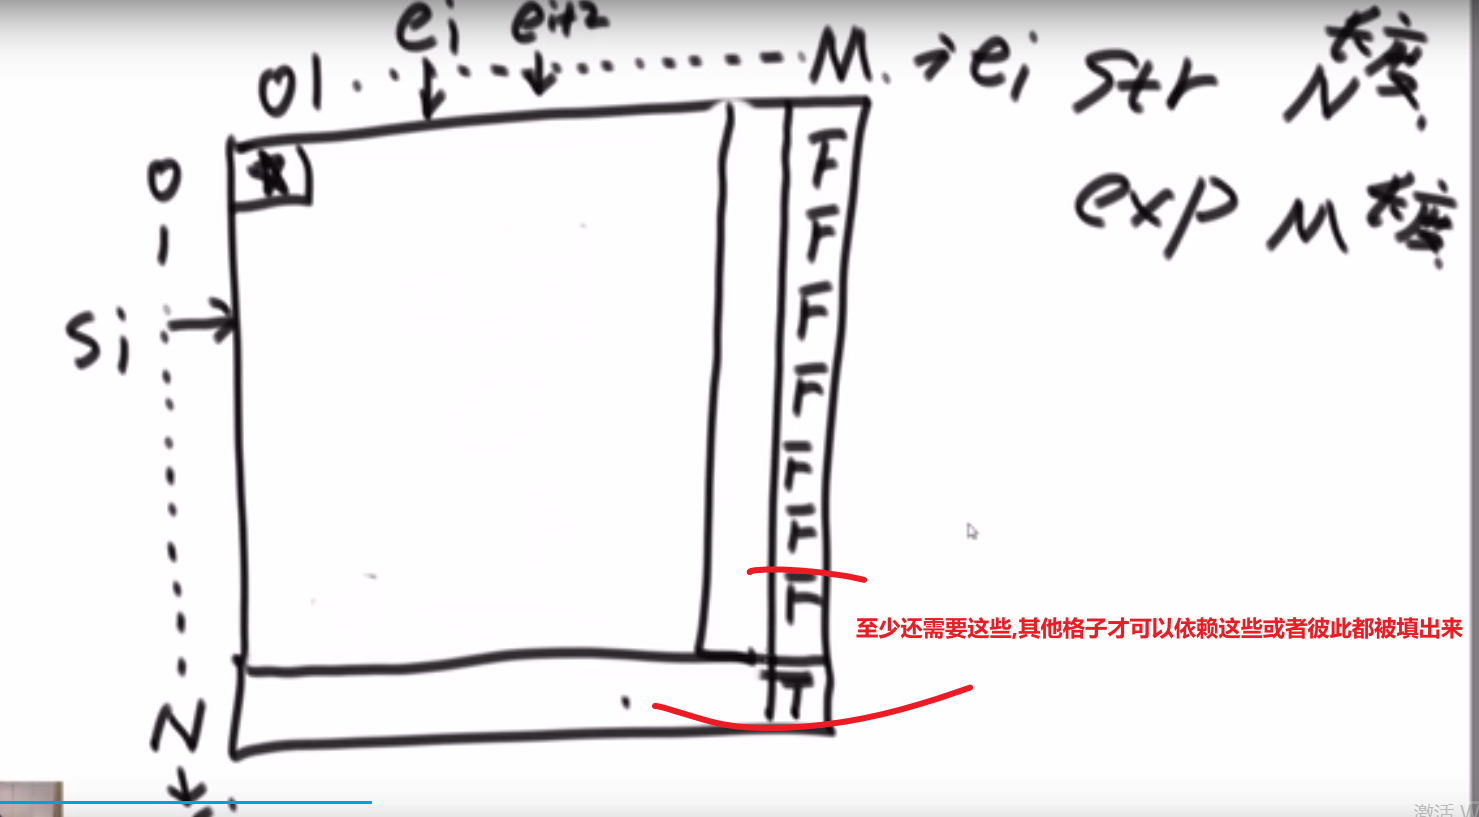 ei ei+2
01 M. → ei str N长度.
0 F exp M长度.
1 F
si F
F
F
F
F
至少还需要这些,其他格子才可以依赖这些或者彼此都被填出来
T
N
激活